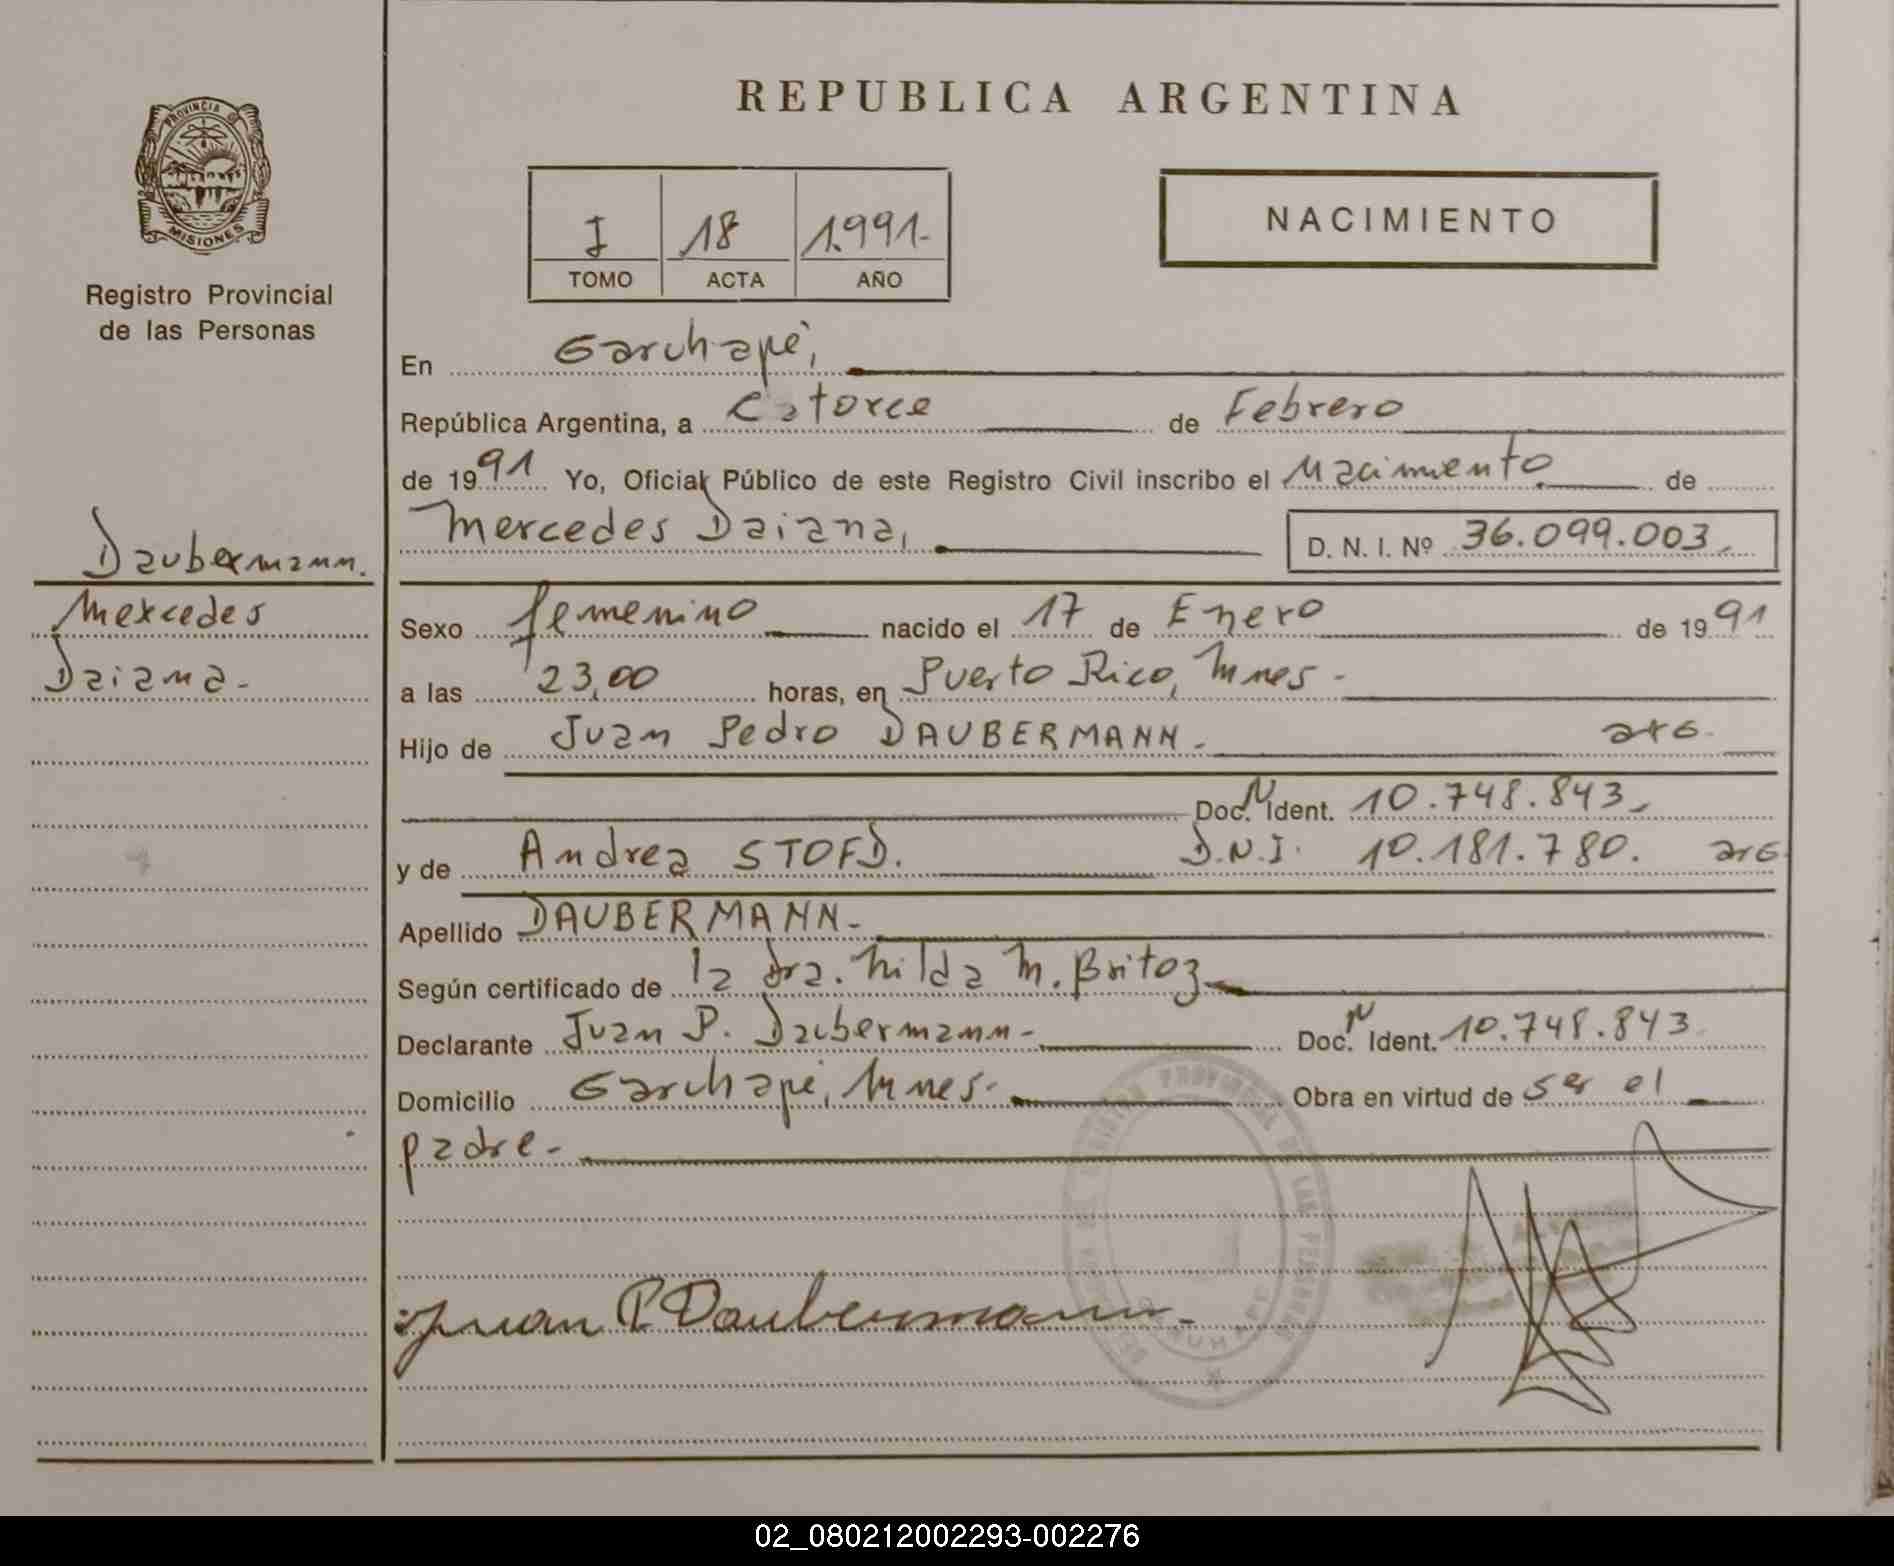 REPUBLICA ARGENTINA
PROVINCIA
MISIONES
Registro Provincial
de las Personas
I 18 1.991.-
TOMO ACTA AÑO
NACIMIENTO
En Garuhapé,
República Argentina, a Catorce de Febrero
de 1991 Yo, Oficial Público de este Registro Civil inscribo el Nacimiento. de
Mercedes Daiana, D. N. I. Nº 36.099.003.
Daubermann.
Mercedes
Daiana.-
Sexo femenino nacido el 17 de Enero de 1991
a las 23,00 horas, en Puerto Rico, Mnes.-
Hijo de Juan Pedro DAUBERMANN.- arG.
Doc. N Ident. 10.748.843.
y de Andrea STOFD. D.N.I. 10.181.780. arG.
Apellido DAUBERMANN.-
Según certificado de la Dra. Nilda M. Britoz
Declarante Juan P. Daubermann.- Doc. N Ident. 10.748.843
Domicilio Garuhapé, Mnes.- Obra en virtud de ser el
padre.-
Juan P. Daubermann.-
PROVINCIAL DE LAS PERSONAS
GARUHAPE
02_080212002293-002276